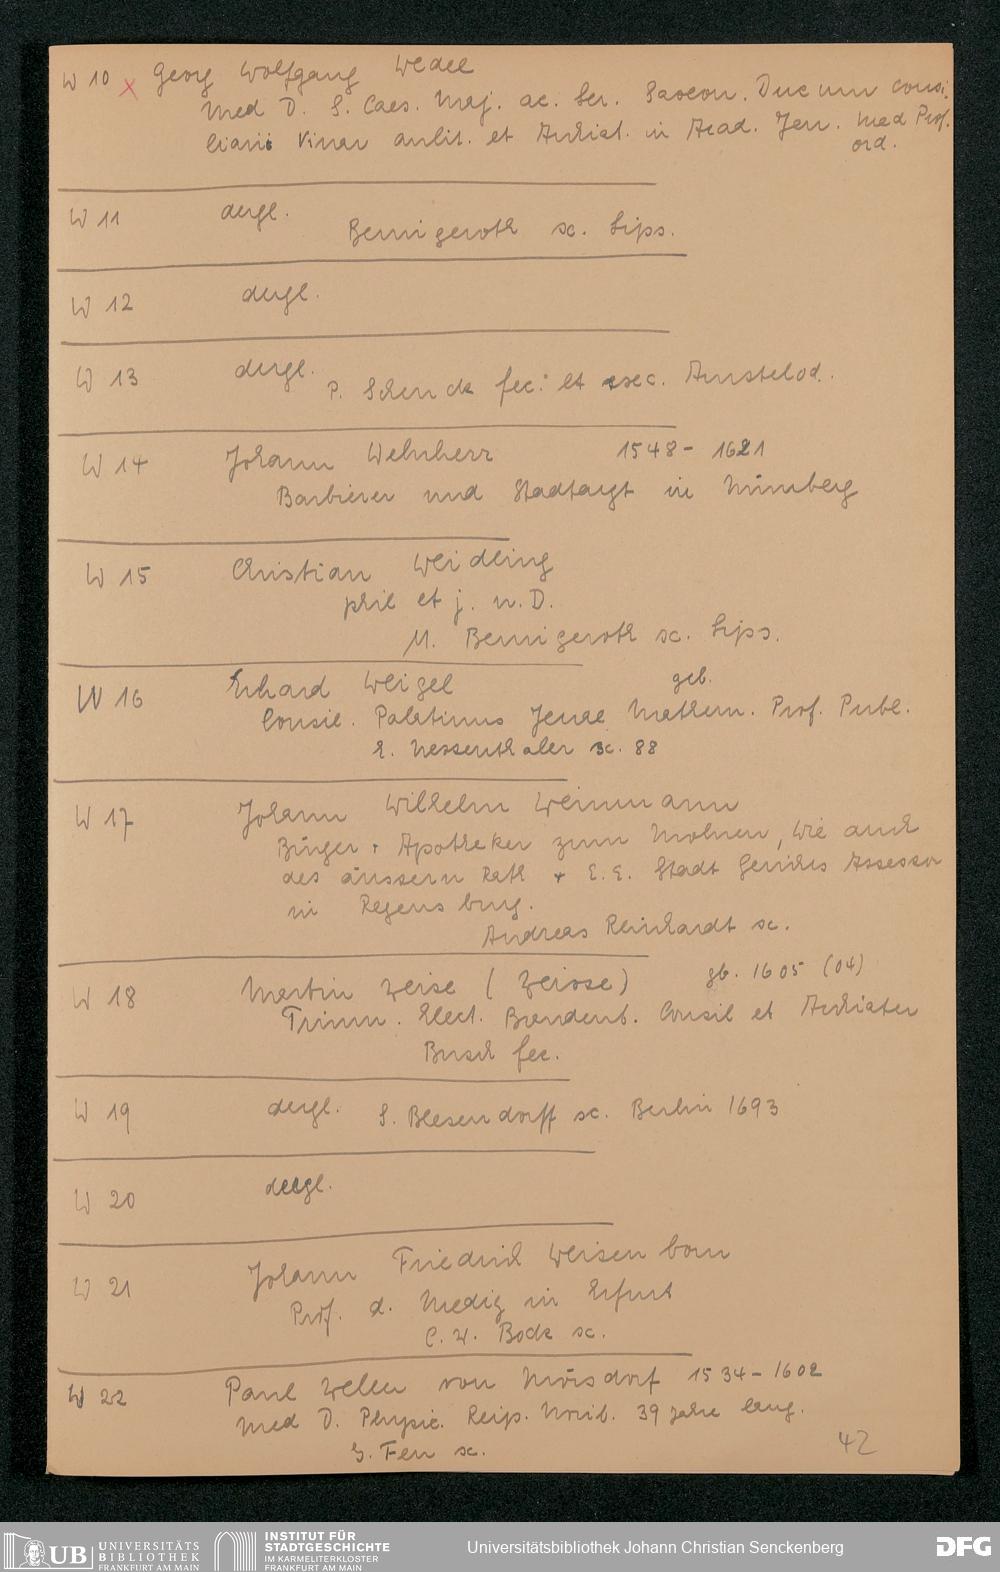 W 10 x Georg Wolfgang Wedel
Med D. S. Caes. Maj. ac. Ser. Saxon. Ducum Consi-
liarii Vinar aulic. et Archiat. in Acad. Jen. Med Prof.
ord.
W 11 dergl.
Bernigeroth sc. Lips.
W 12 dergl.
W 13 dergl.
P. Schenck fec: et exc. Amstelod.
W 14 Johann Wehnherr 1548 - 1621
Barbierer und Stadtarzt in Nürnberg
W 15 Christian Weidling
phil et j. u. D.
M. Bernigeroth sc. Lips.
W 16 Erhard Weigel geb.
Consil. Palatinus Jenae Mathem. Prof. Publ.
E. Nessenthaler sc. 88
W 17 Johann Wilhelm Weinmann
Bürger + Apotheker zum Mohren, wie auch
des äussern Rath + E. E. Stadt Gerichts Assessor
in Regensburg.
Andreas Reinhardt sc.
W 18 Martin Weise (Weisse) gb. 1605 (04)
Trium. Elect. Brandenb. Consil et Archiater
Busch fec.
W 19 dergl. S. Blesendorff sc. Berlin 1693
W 20 dergl.
W 21 Johann Friedrich Weisenborn
Prof. d. Mediz in Erfurt
C. W. Bock sc.
W 22 Paul Weller von Mörsdorf 1534 - 1602
Med D. Physic. Reip. Norib. 39 Jahre lang.
G. Fen sc.
42
UB UNIVERSITÄTS
BIBLIOTHEK
FRANKFURT AM MAIN
INSTITUT FÜR
STADTGESCHICHTE
IM KARMELITERKLOSTER
FRANKFURT AM MAIN
Universitätsbibliothek Johann Christian Senckenberg
DFG